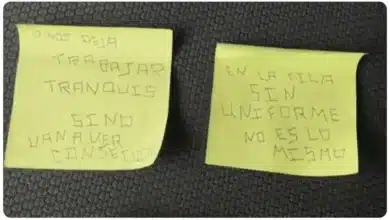 O NOS DEJA
TRABAJAR
TRANQUIS
SINO
VAN A VER
CONSECU
EN LA FILA
SIN
UNIFORME
NO ES LO
MISMO